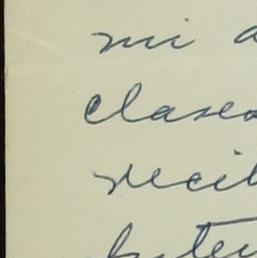 mi a
clases
recib